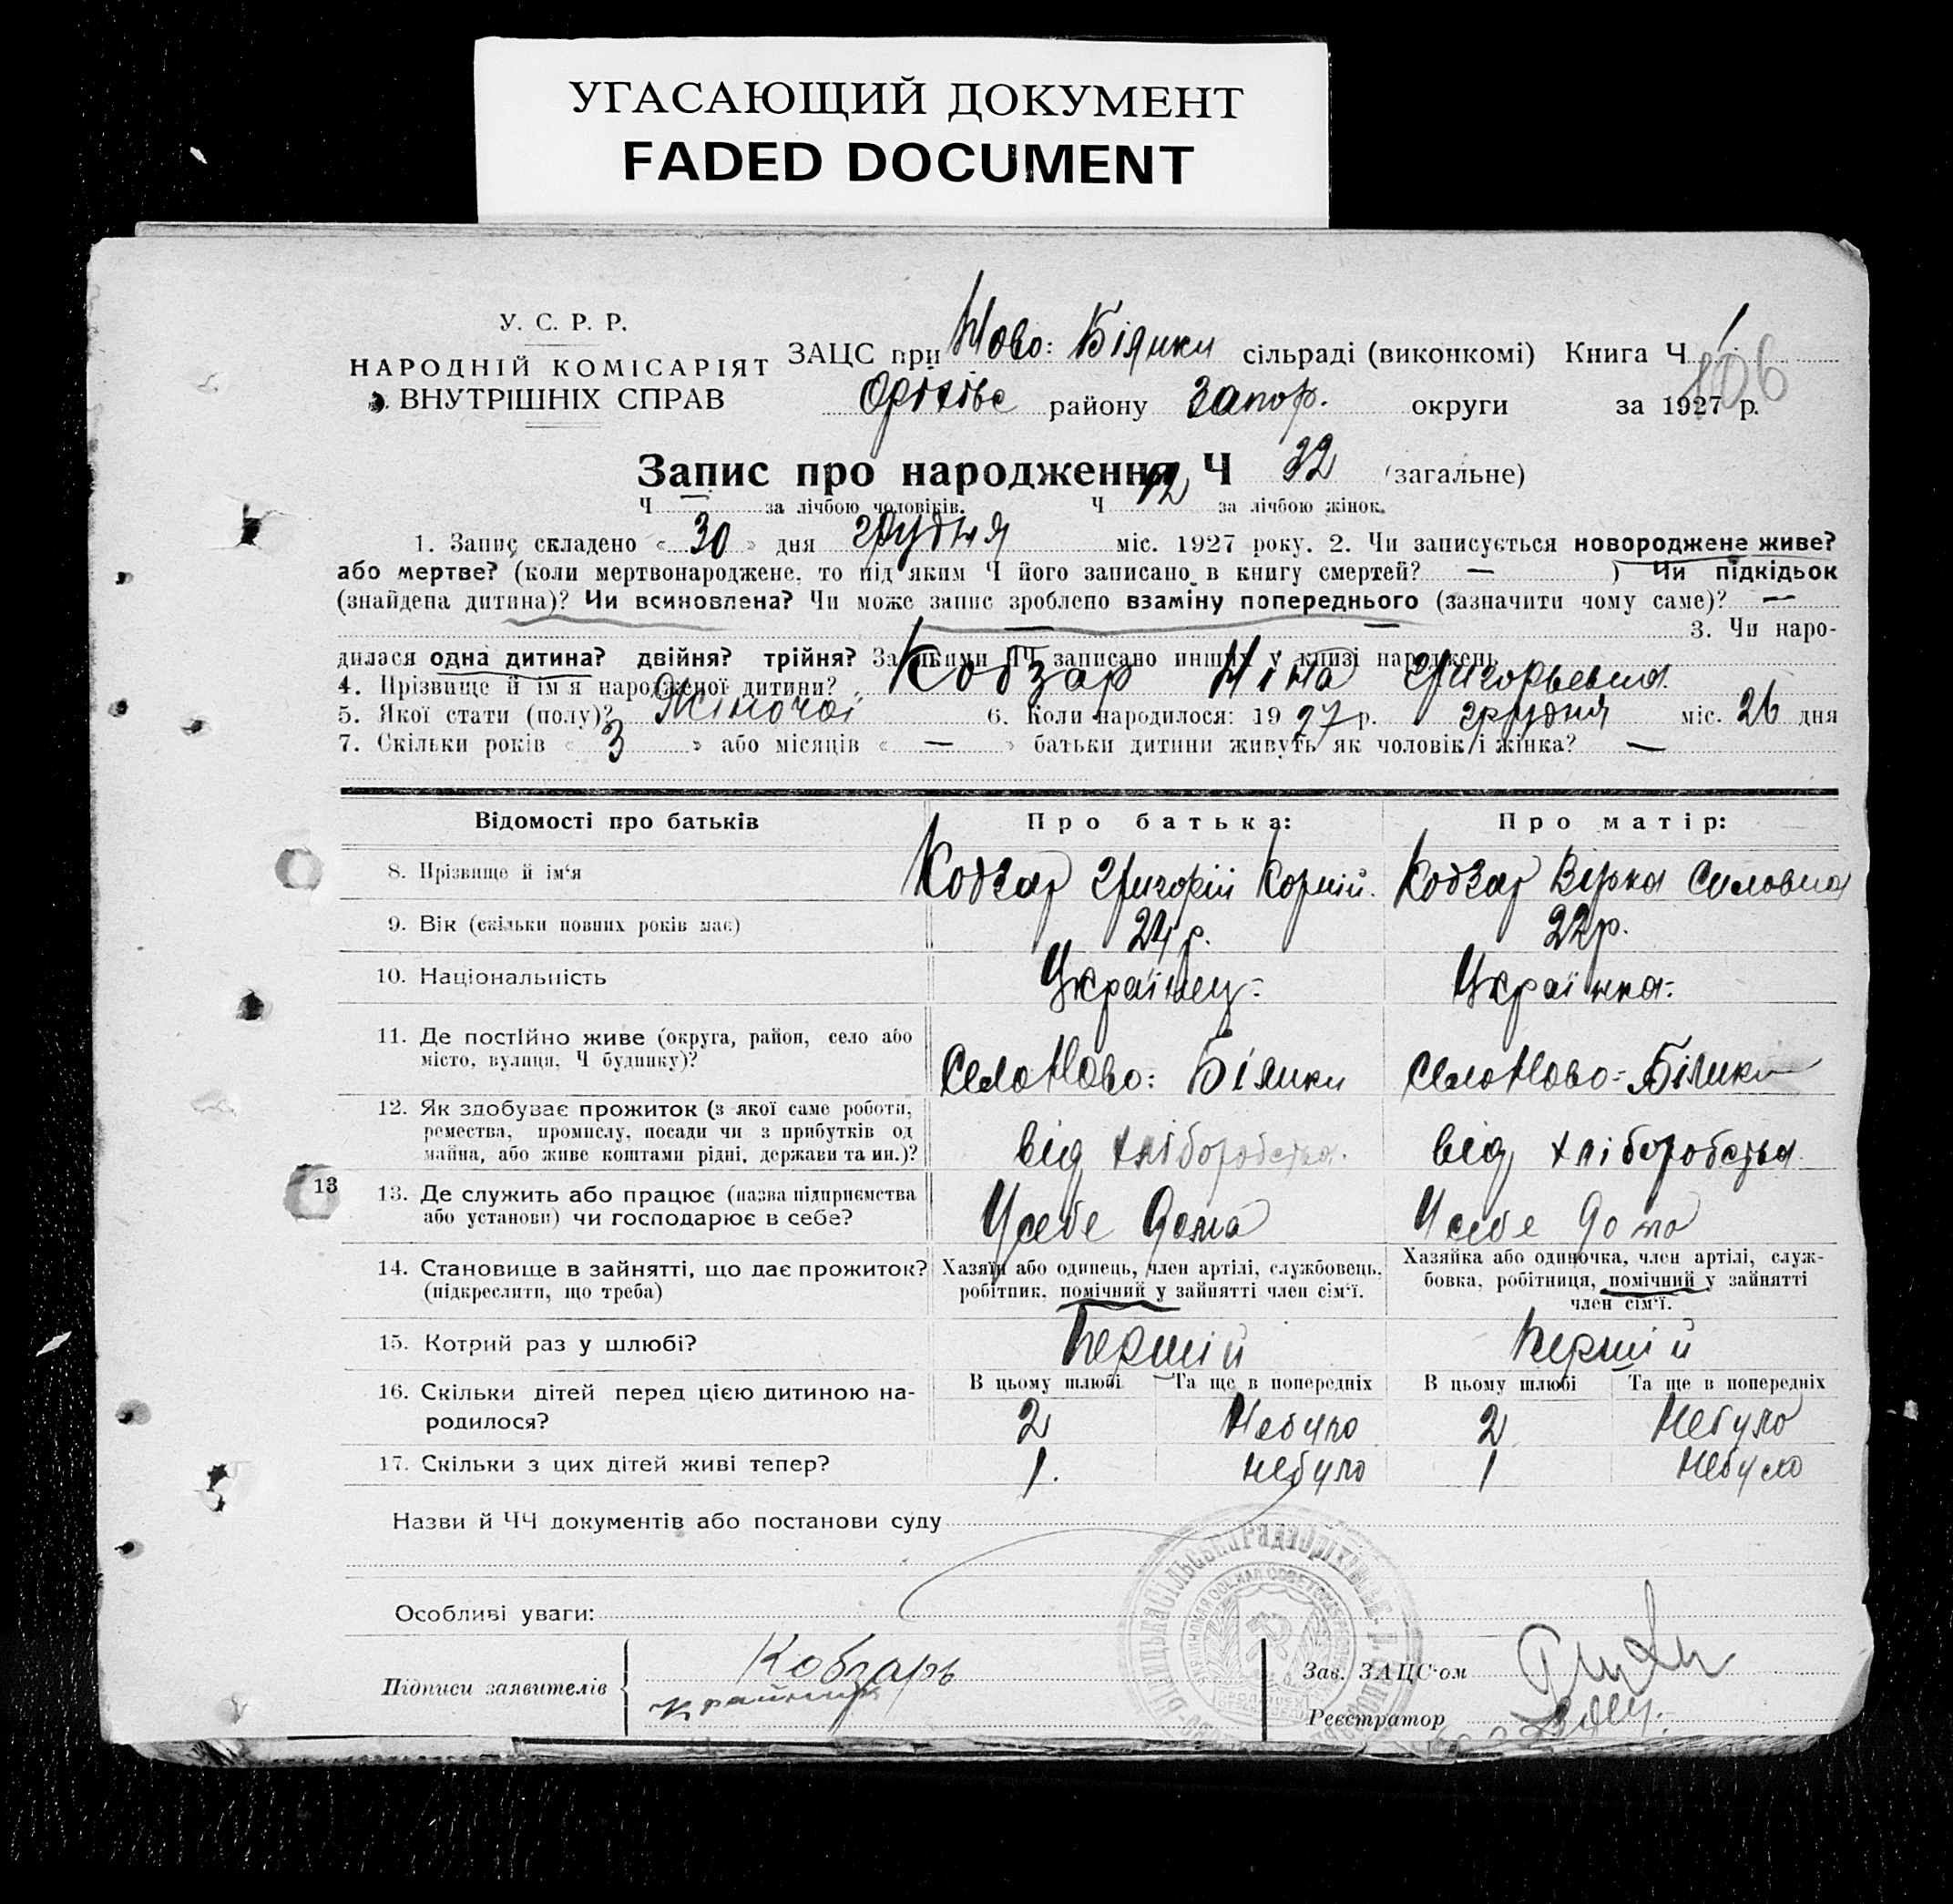 УГАСАЮЩИЙ ДОКУМЕНТ
FADED DOCUMENT
У. С. Р. Р.
НАРОДНІЙ КОМІСАРІЯТ
ВНУТРІШНІХ СПРАВ
ЗАЦС при Ново: Білики сільраді (виконкомі) Книга Ч 1
106
Оріхівс району Запор. округи за 1927 р.
Запис про народження Ч 32 (загальне)
Ч — за лічбою чоловіків. Ч 12 за лічбою жінок.
1. Запис складено « 30 » дня грудня міс. 1927 року. 2. Чи записується новороджене живе?
або мертве? (коли мертвонароджене, то під яким Ч його записано в книгу смертей? — ) Чи підкідьок
(знайдена дитина)? Чи всиновлена? Чи може запис зроблено взаміну попереднього (зазначити чому саме)? —
— — 3. Чи наро-
дилася одна дитина? двійня? трійня? За якими ЧЧ записано инших у книзі народжень
4. Прізвище й ім'я народженої дитини? Кобзар Ніна Григорьевна.
5. Якої стати (полу)? Жіночої 6. Коли народилося: 1927 р. грудня міс. 26 дня
7. Скільки років « 3 » або місяців « — » батьки дитини живуть як чоловік і жінка? —
Відомості про батьків Про батька: Про матір:
8. Прізвище й ім'я Кобзар Григорій Корній. Кобзар Вірка
9. Вік (скільки повних років має) 24 р. 22 р.
10. Національність Українец: Українка:
11. Де постійно живе (округа, район, село або
місто, вулиця, Ч будинку)? Село Ново: Білики Село Ново-Білики
12. Як здобуває прожиток (з якої саме роботи,
ремества, промислу, посади чи з прибутків од
майна, або живе коштами рідні, держави та ин.)? від хліборобства. від хліборобства.
13
13. Де служить або працює (назва підприємства
або установи) чи господарює в себе? У себе дома У себе дома
14. Становище в зайнятті, що дає прожиток?
(підкреслити, що треба)
Хазяїн або одинець, член артілі, службовець,
робітник, помічний у зайнятті член сім'ї.
Хазяйка або одиночка, член артілі, служ-
бовка, робітниця, помічний у зайнятті
член сім'ї.
15. Котрий раз у шлюбі? Першій Першій
16. Скільки дітей перед цією дитиною на-
родилося?
В цьому шлюбі Та ще в попередніх В цьому шлюбі Та ще в попередніх
2 Небуло 2 Небуло
17. Скільки з цих дітей живі тепер? 1. небуло 1 Небуло
Назви й ЧЧ документів або постанови суду
Особливі уваги:
Підписи заявителів Кобзарь
Зав. ЗАЦС-ом
Реєстратор